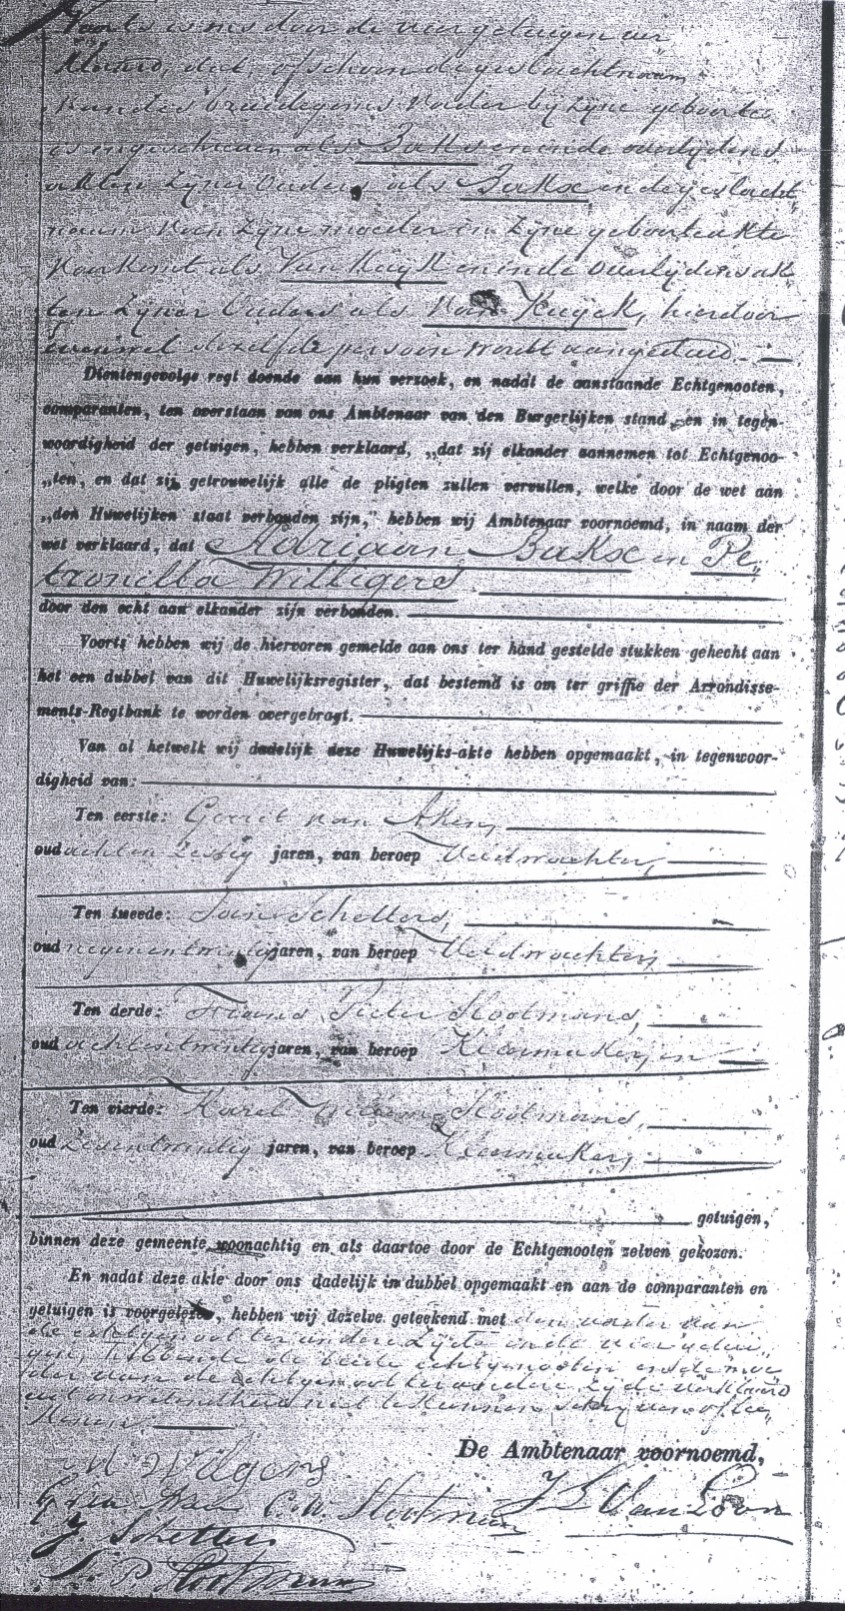 Voorts is ons door de vier getuigen ver
klaard, dat, ofschoon de geslachtnaam
van des bruidegoms Vader by zyne geboorte
is ingeschreven als Baks en in de overlydens
akten zyner Ouders als Bakx en de geslacht„
naam van zyne moeder in zyne geboorteakte
voorkomt als Van Kuyk en in de Overlydensak„
ten zyner Ouders als Van Kuijck, hierdoor
evenwel dezelfde persoon wordt aangeduid.
Dientengevolge regt doende aan hun verzoek, en nadat de aanstaande Echtgenooten,
comparanten, ten overstaan van ons Ambtenaar van den Burgerlijken stand, en in tegen-
woordigheid der getuigen, hebben verklaard, „dat zij elkander aannemen tot Echtgenoo-
„ten, en dat zij getrouwelijk alle de pligten zullen vervullen, welke door de wet aan
„den Huwelijken staat verbonden zijn,” hebben wij Ambtenaar voornoemd, in naam der
wet verklaard, dat Adriaan Bakx en Pe„
tronilla Willigers
door den echt aan elkander zijn verbonden.
Voorts hebben wij de hiervoren gemelde aan ons ter hand gestelde stukken gehecht aan
het een dubbel van dit Huwelijksregister, dat bestemd is om ter griffie der Arrondisse-
ments-Regtbank te worden overgebragt.
Van al hetwelk wij dadelijk deze Huwelijks-akte hebben opgemaakt, in tegenwoor-
digheid van:
Ten eerste: Gerrit van Aken,
oud achten zestig jaren, van beroep Veldwachter,
Ten tweede: Jan Schellers,
oud negenentwintig jaren, van beroep Veldwachter,
Ten derde: Frans Pieter Slootmans,
oud achtentwintig jaren, van beroep Kleermaker, en
Ten vierde: Karel Willem Slootmans,
oud zeventwintig jaren, van beroep Kleermaker,
getuigen,
binnen deze gemeente woonachtig en als daartoe door de Echtgenooten zelven gekozen.
En nadat deze akte door ons dadelijk in dubbel opgemaakt en aan de comparanten en
getuigen is voorgelezen, hebben wij dezelve geteekend met den vader van
de echtgenoot ter andere zyde en de vier getui„
gen, hebbende de beide echtgenooten en de moe
der van de echtgenoot ter andere zyde verklaard
uit onervarenheid niet te kunnen schryven of tee„
kenen.
De Ambtenaar voornoemd,
W Wilgers
G van Aken C. W. Slootmans J L Van Loon
J. Schellers
F. P. Slootmans